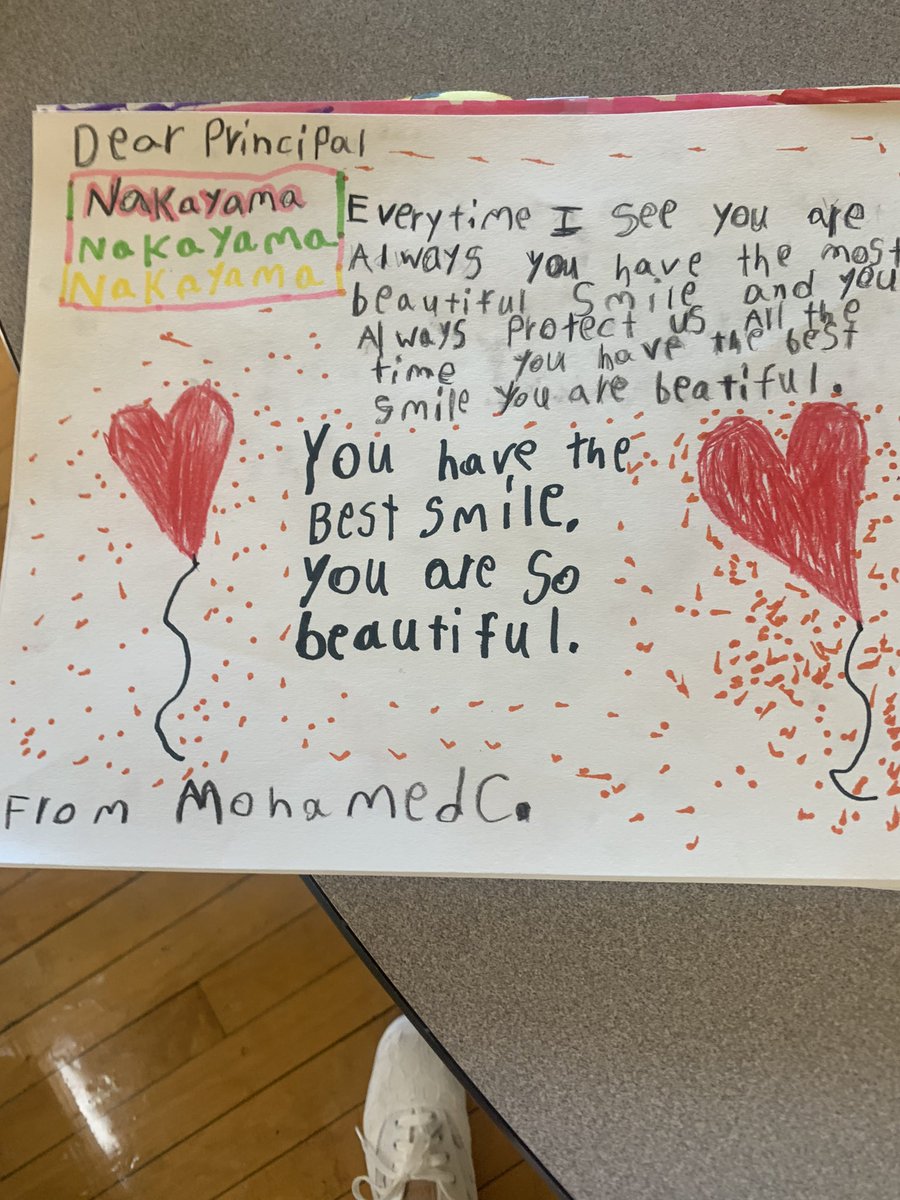 Dear Principal
Nakayama
Nakayama
Nakayama
Everytime I see you are
Always you have the most
beautiful smile and you
Always Protect us All the
time you have the best
smile you are beatiful.
You have the
Best smile.
You are so
beautiful.
From Mohamed C.